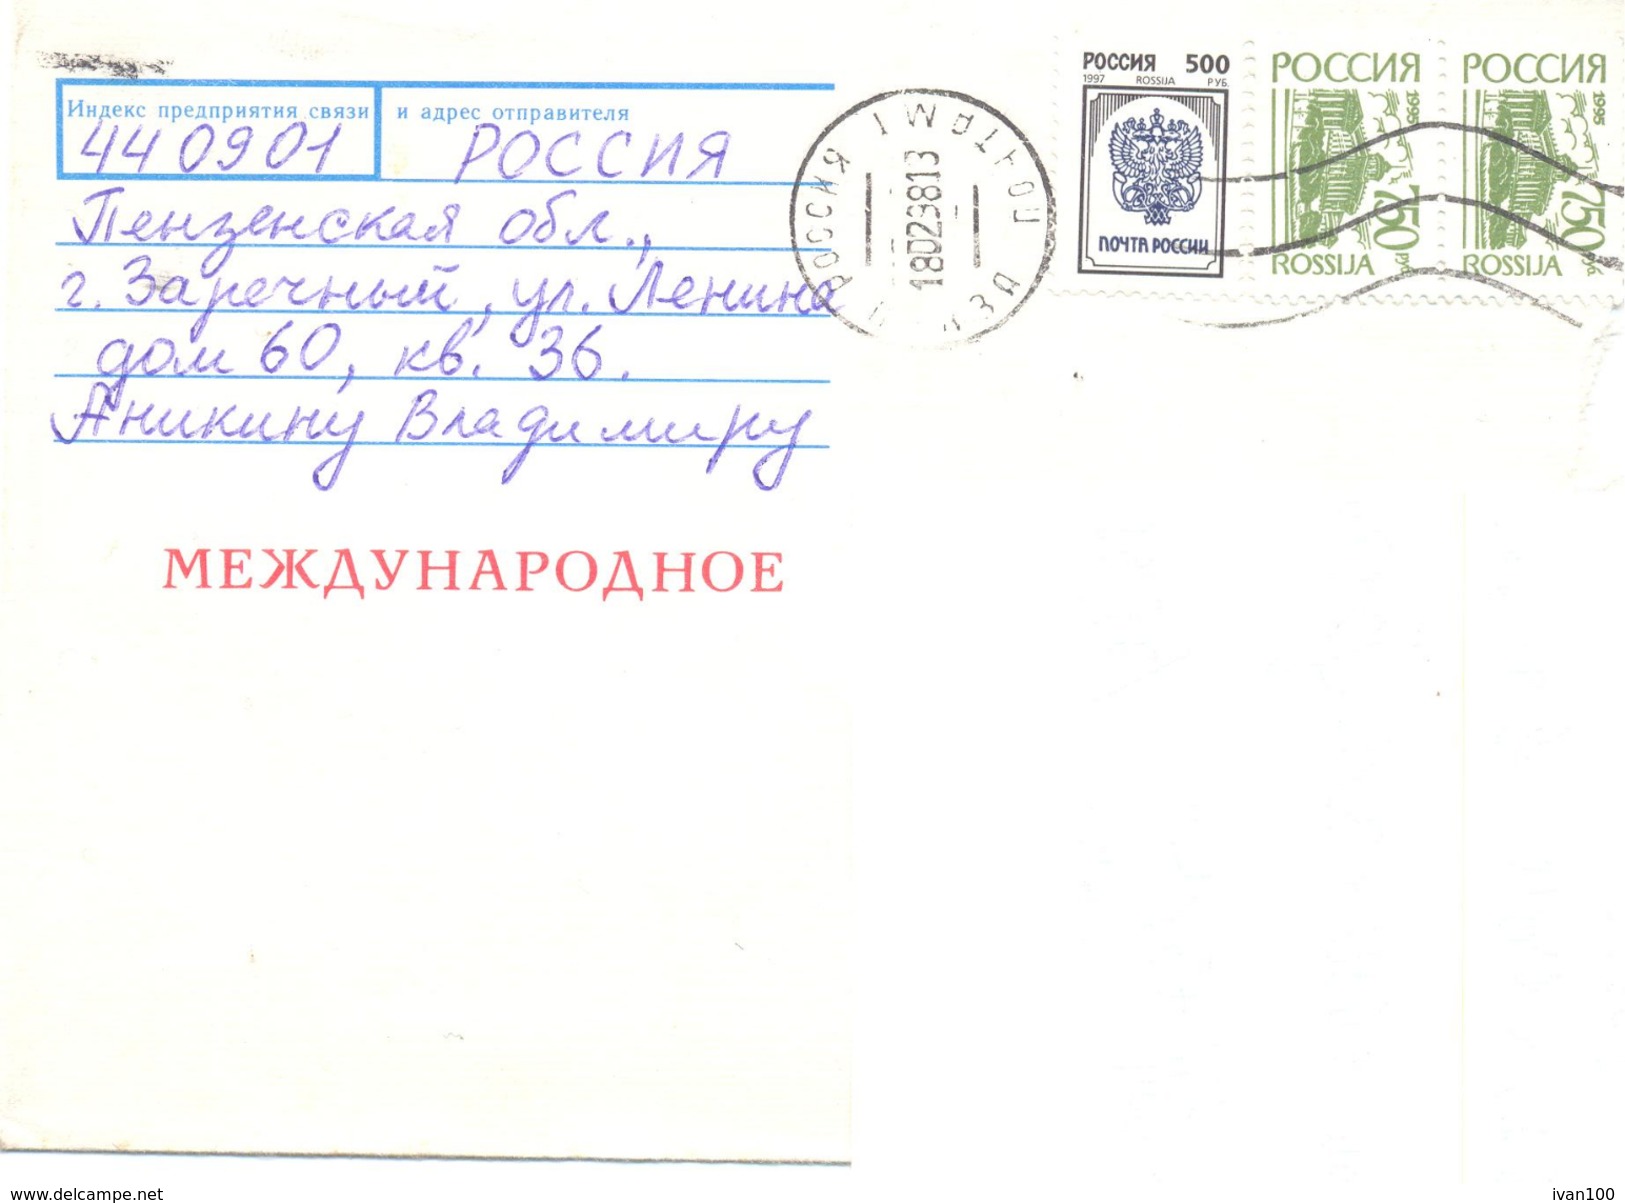 Индекс предприятия связи и адрес отправителя
440901 РОССИЯ
Пензенская обл.,
г. Заречный, ул. Ленина
дом 60, кв. 36.
Аникину Владимиру
МЕЖДУНАРОДНОЕ
РОССИЯ
ПОЧТАМТ
1802239813
РОССИЯ 500
1997 ROSSIJA РУБ.
ПОЧТА РОССИИ
РОССИЯ
1995
750 руб
ROSSIJA
РОССИЯ
1995
750
ROSSIJA
www.delcampe.net
ivan100